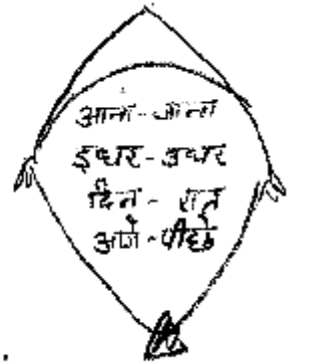 आना-जाना
इधर-उधर
दिन - रात
आगे-पीछे